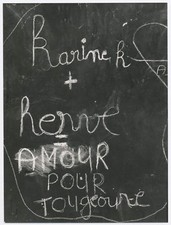 Karine K
+
herve
=
AMOUR
POUR
TOUgEOURE